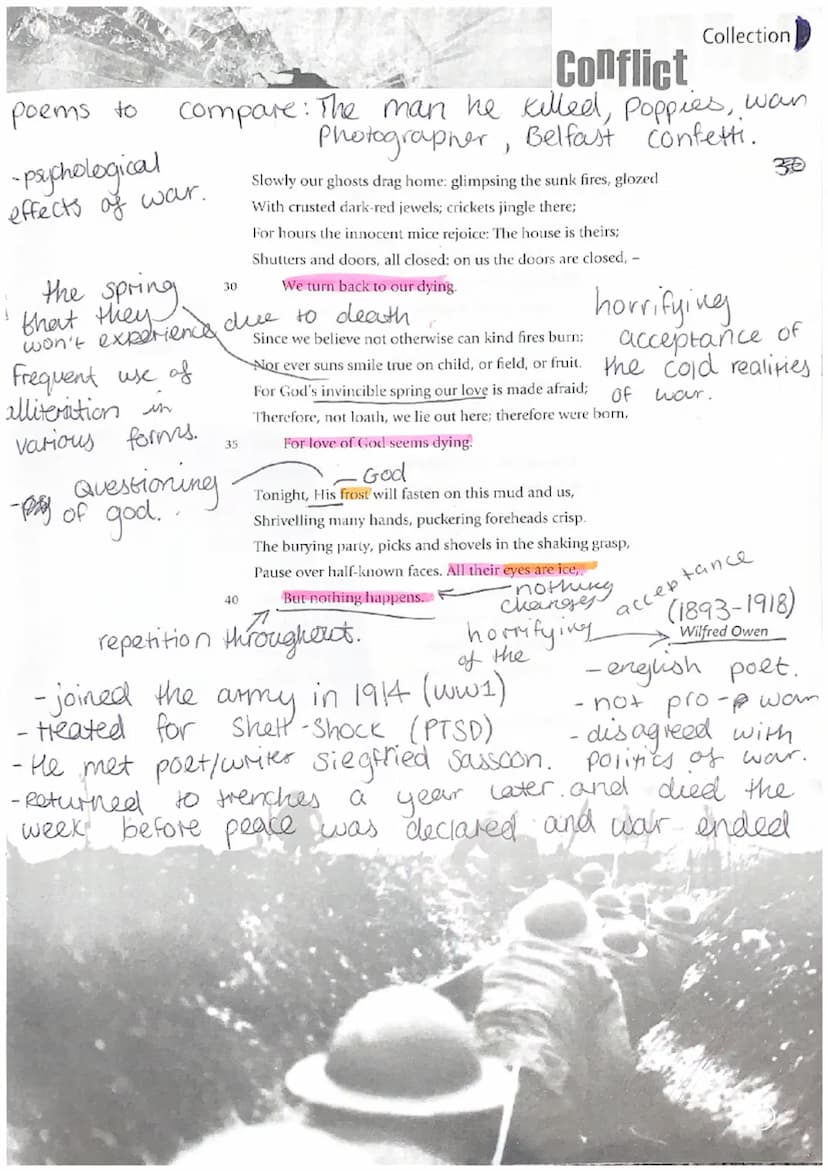 Collection D
Conflict
poems to compare: The man he killed, Poppies, war
Photographer, Belfast Confetti.
-psychological
effects of war.
Slowly our ghosts drag home: glimpsing the sunk fires, glozed
With crusted dark-red jewels; crickets jingle there;
For hours the innocent mice rejoice: The house is theirs;
Shutters and doors, all closed: on us the doors are closed, –
30 We turn back to our dying.
the spring
that they
won't experience due to death
horrifying
acceptance of
the cold realities
of war.
Since we believe not otherwise can kind fires burn;
Nor ever suns smile true on child, or field, or fruit.
For God's invincible spring our love is made afraid;
Therefore, not loath, we lie out here; therefore were born,
35 For love of God seems dying.
Frequent use of
alliteration in
various forms.
- Questioning
of god.
God
Tonight, His frost will fasten on this mud and us,
Shrivelling many hands, puckering foreheads crisp.
The burying party, picks and shovels in the shaking grasp,
Pause over half-known faces. All their eyes are ice,
40 But nothing happens.
nothing
changes
repetition throughout.
horrifying
acceptance
of the
(1893-1918)
Wilfred Owen
- english poet.
- not pro-war
- disagreed with
politics of war.
- joined the army in 1914 (WW1)
- treated for Shell-Shock (PTSD)
- He met poet/writer Siegfried Sassoon.
- returned to trenches a year later. and died the
week before peace was declared and war ended